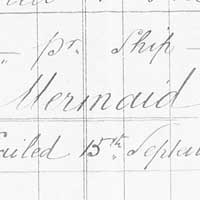 " pr. Ship —
Mermaid
Sailed 15th Septem